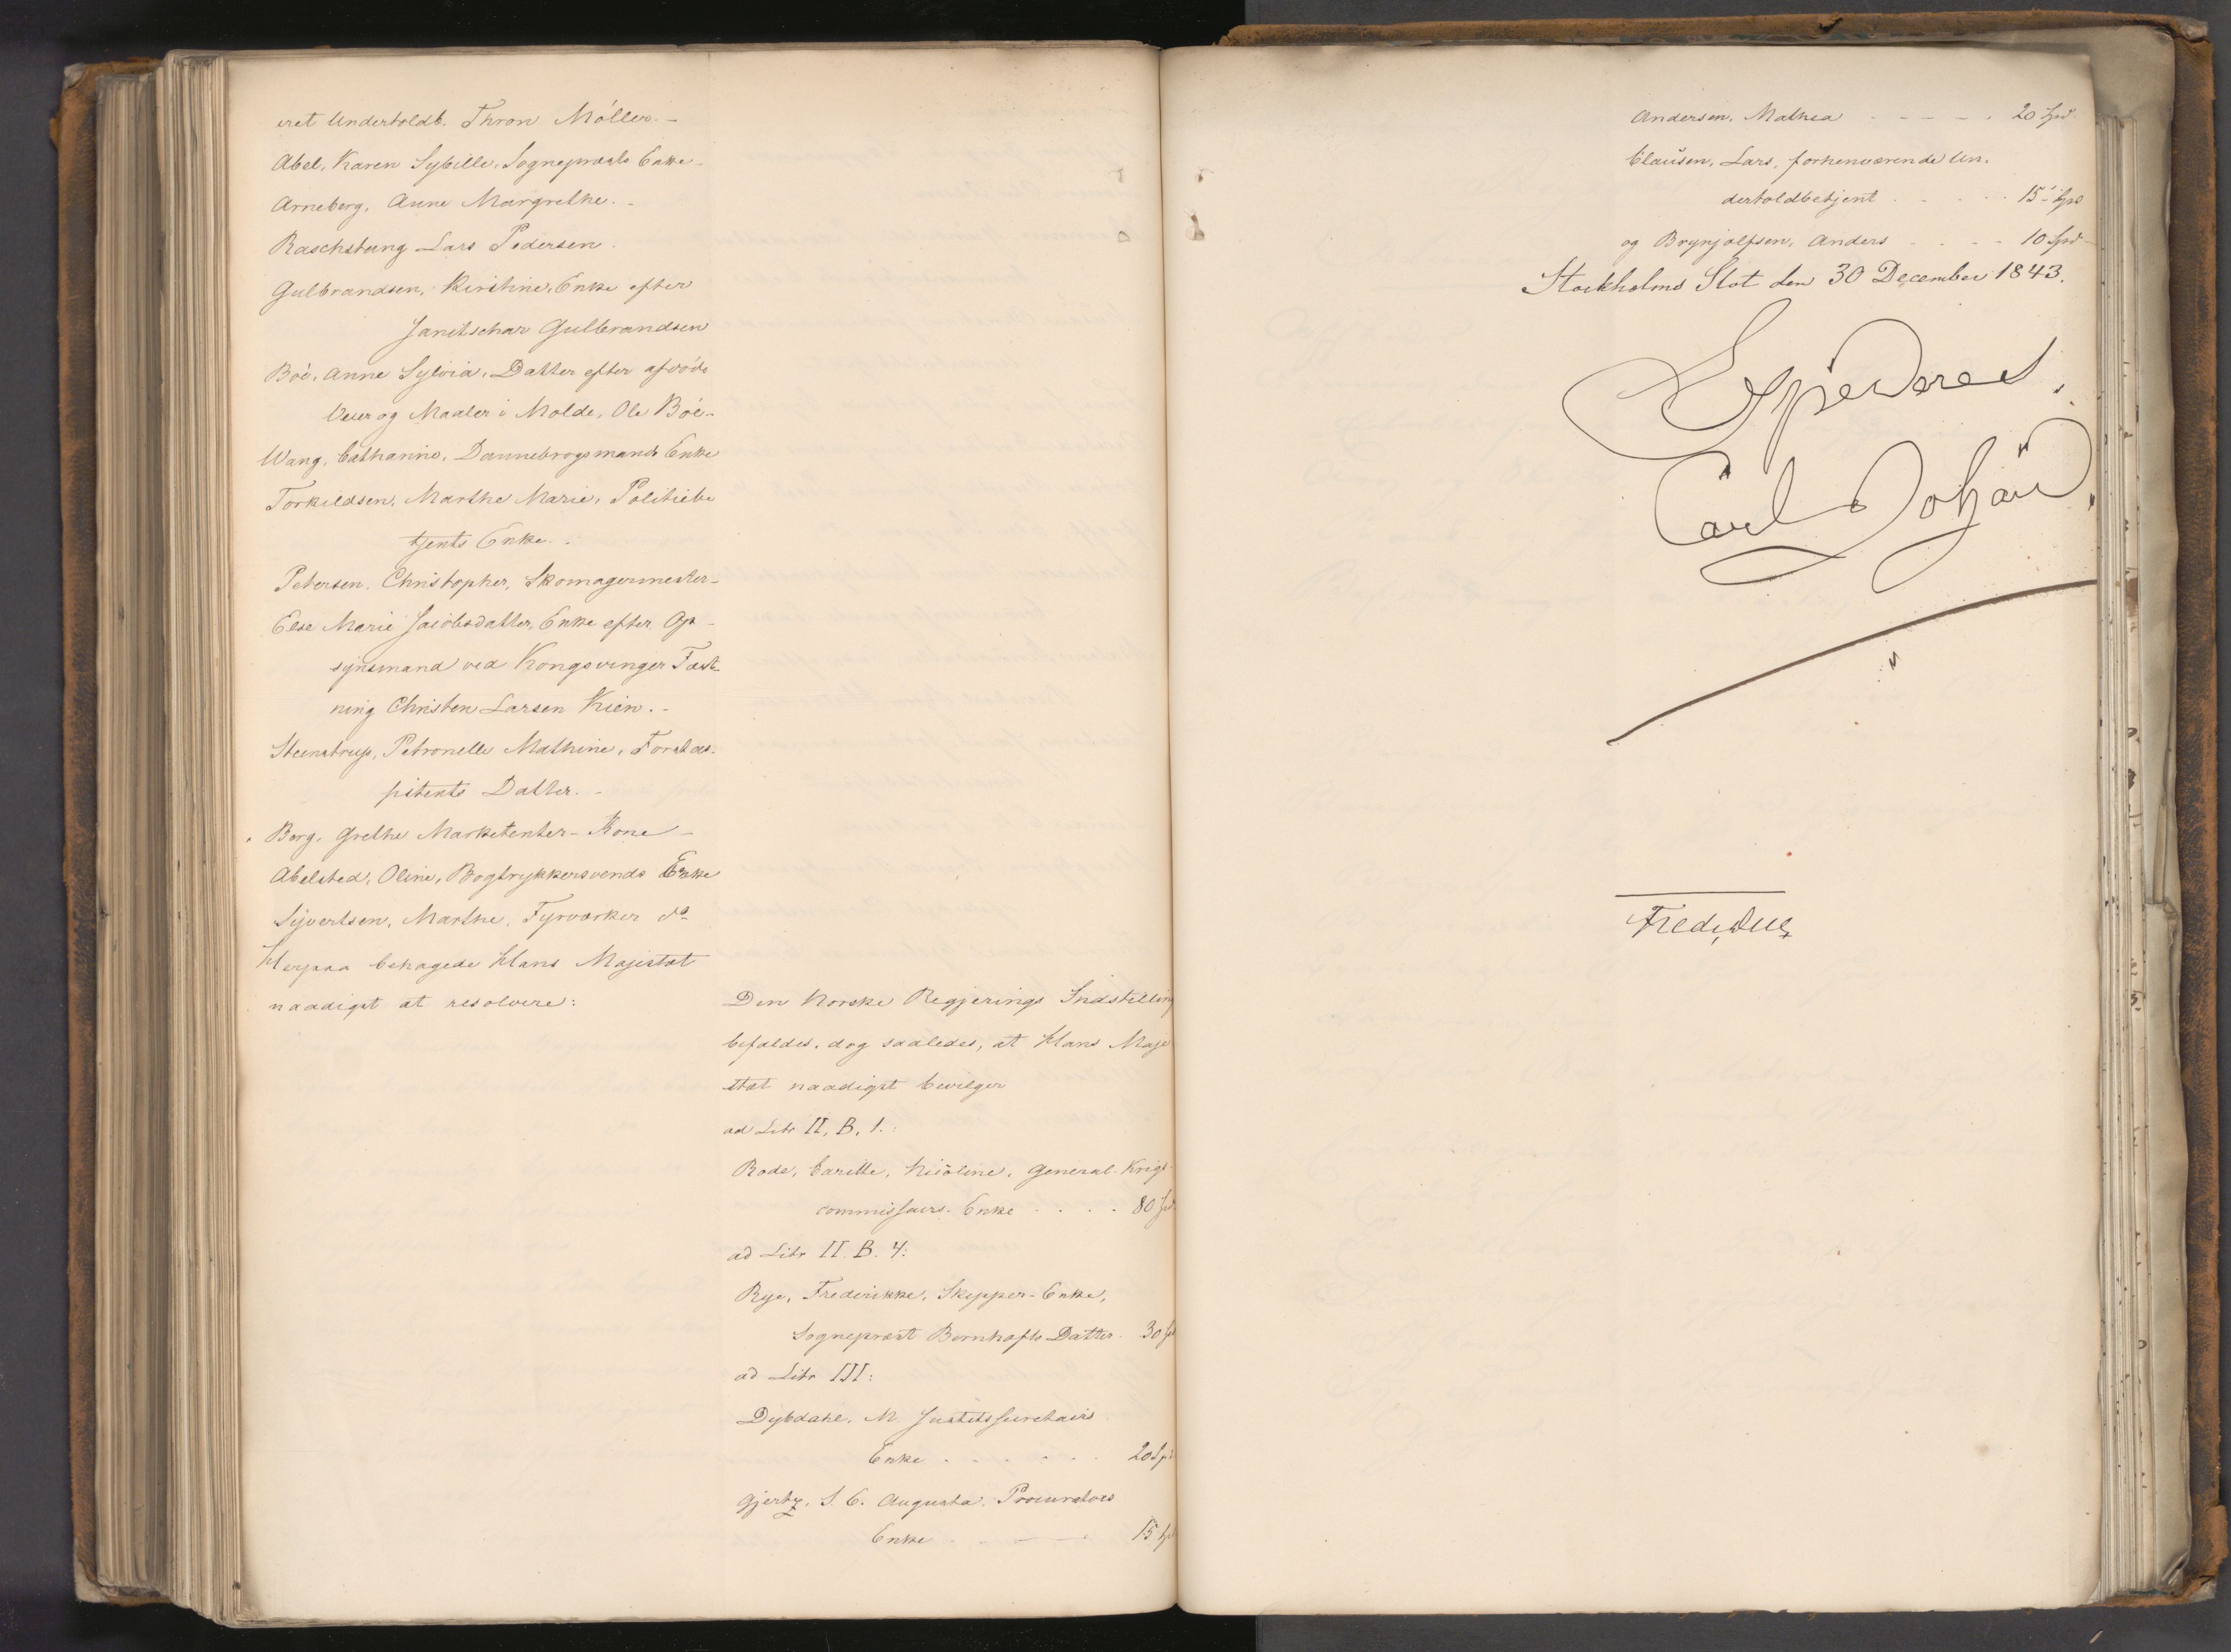 eret Undertoldb. Thron Möller. -
Abel, Karen Sybille, Sognepræsts Enke -
Arneberg, Anne Margrethe. -
Raschstung Lars Pedersen.
Gulbrandsen, Kirstine, Enke efter
Janitschar Gulbrandsen
Boé, Anne Sylvia, Datter efter afdöde
Veier og Maaler i Molde, Ole Boé -
Wang, Cathrine, Dannebrogsmands Enke
Torkildsen, Marthe Marie, Politiebe
tjents Enke. -
Petersen, Christopher, Skomagermester -
Else Marie Jacobsdatter, Enke efter Op -
synsmand ved Kongsvinger Fæst-
ning Christen Larsen Kien. -
Steenstrup, Petronelle Mathine, Forstas-
pirants Datter. -
Borg, Grethe Marketenter-Kone -
Abelsted, Oline, Bogtrykkersvends Enke
Syvertsen, Marthe, Fyrværker do
Herpaa behagede Hans Majestæt
naadigst at resolvere:
Den Norske Regjerings Indstilling
bifaldes, dog saaledes, at Hans Maje
stæt naadigst bevilger
ad Litr II, B, 1.:
Rode, Caritte, Nicoline, General-Krigs-
commissairs-Enke . . . . 80 Spd.
ad Litr II. B. 4:
Rye, Frederikke, Skipper-Enke,
Sognepræst Bernhofts Datter. 30 Spd
ad Litr III:
Dybdahl, M. Justitssecretairs
Enke . . . . . . 20 Spd
Gjertz, S. C. Augusta, Procurators
Enke . . - . 15 Spd
Andersen, Mathea - - - - . 20 Spd.
Clausen, Lars, forhenværende Un-
dertoldbetjent . . . . . 15 Spd
og Brynjolfsen, Anders . . . - 10 Spd -
Stockholms Slot den 30 December 1843.
Expederes.
Carl Johan
Fred. Due